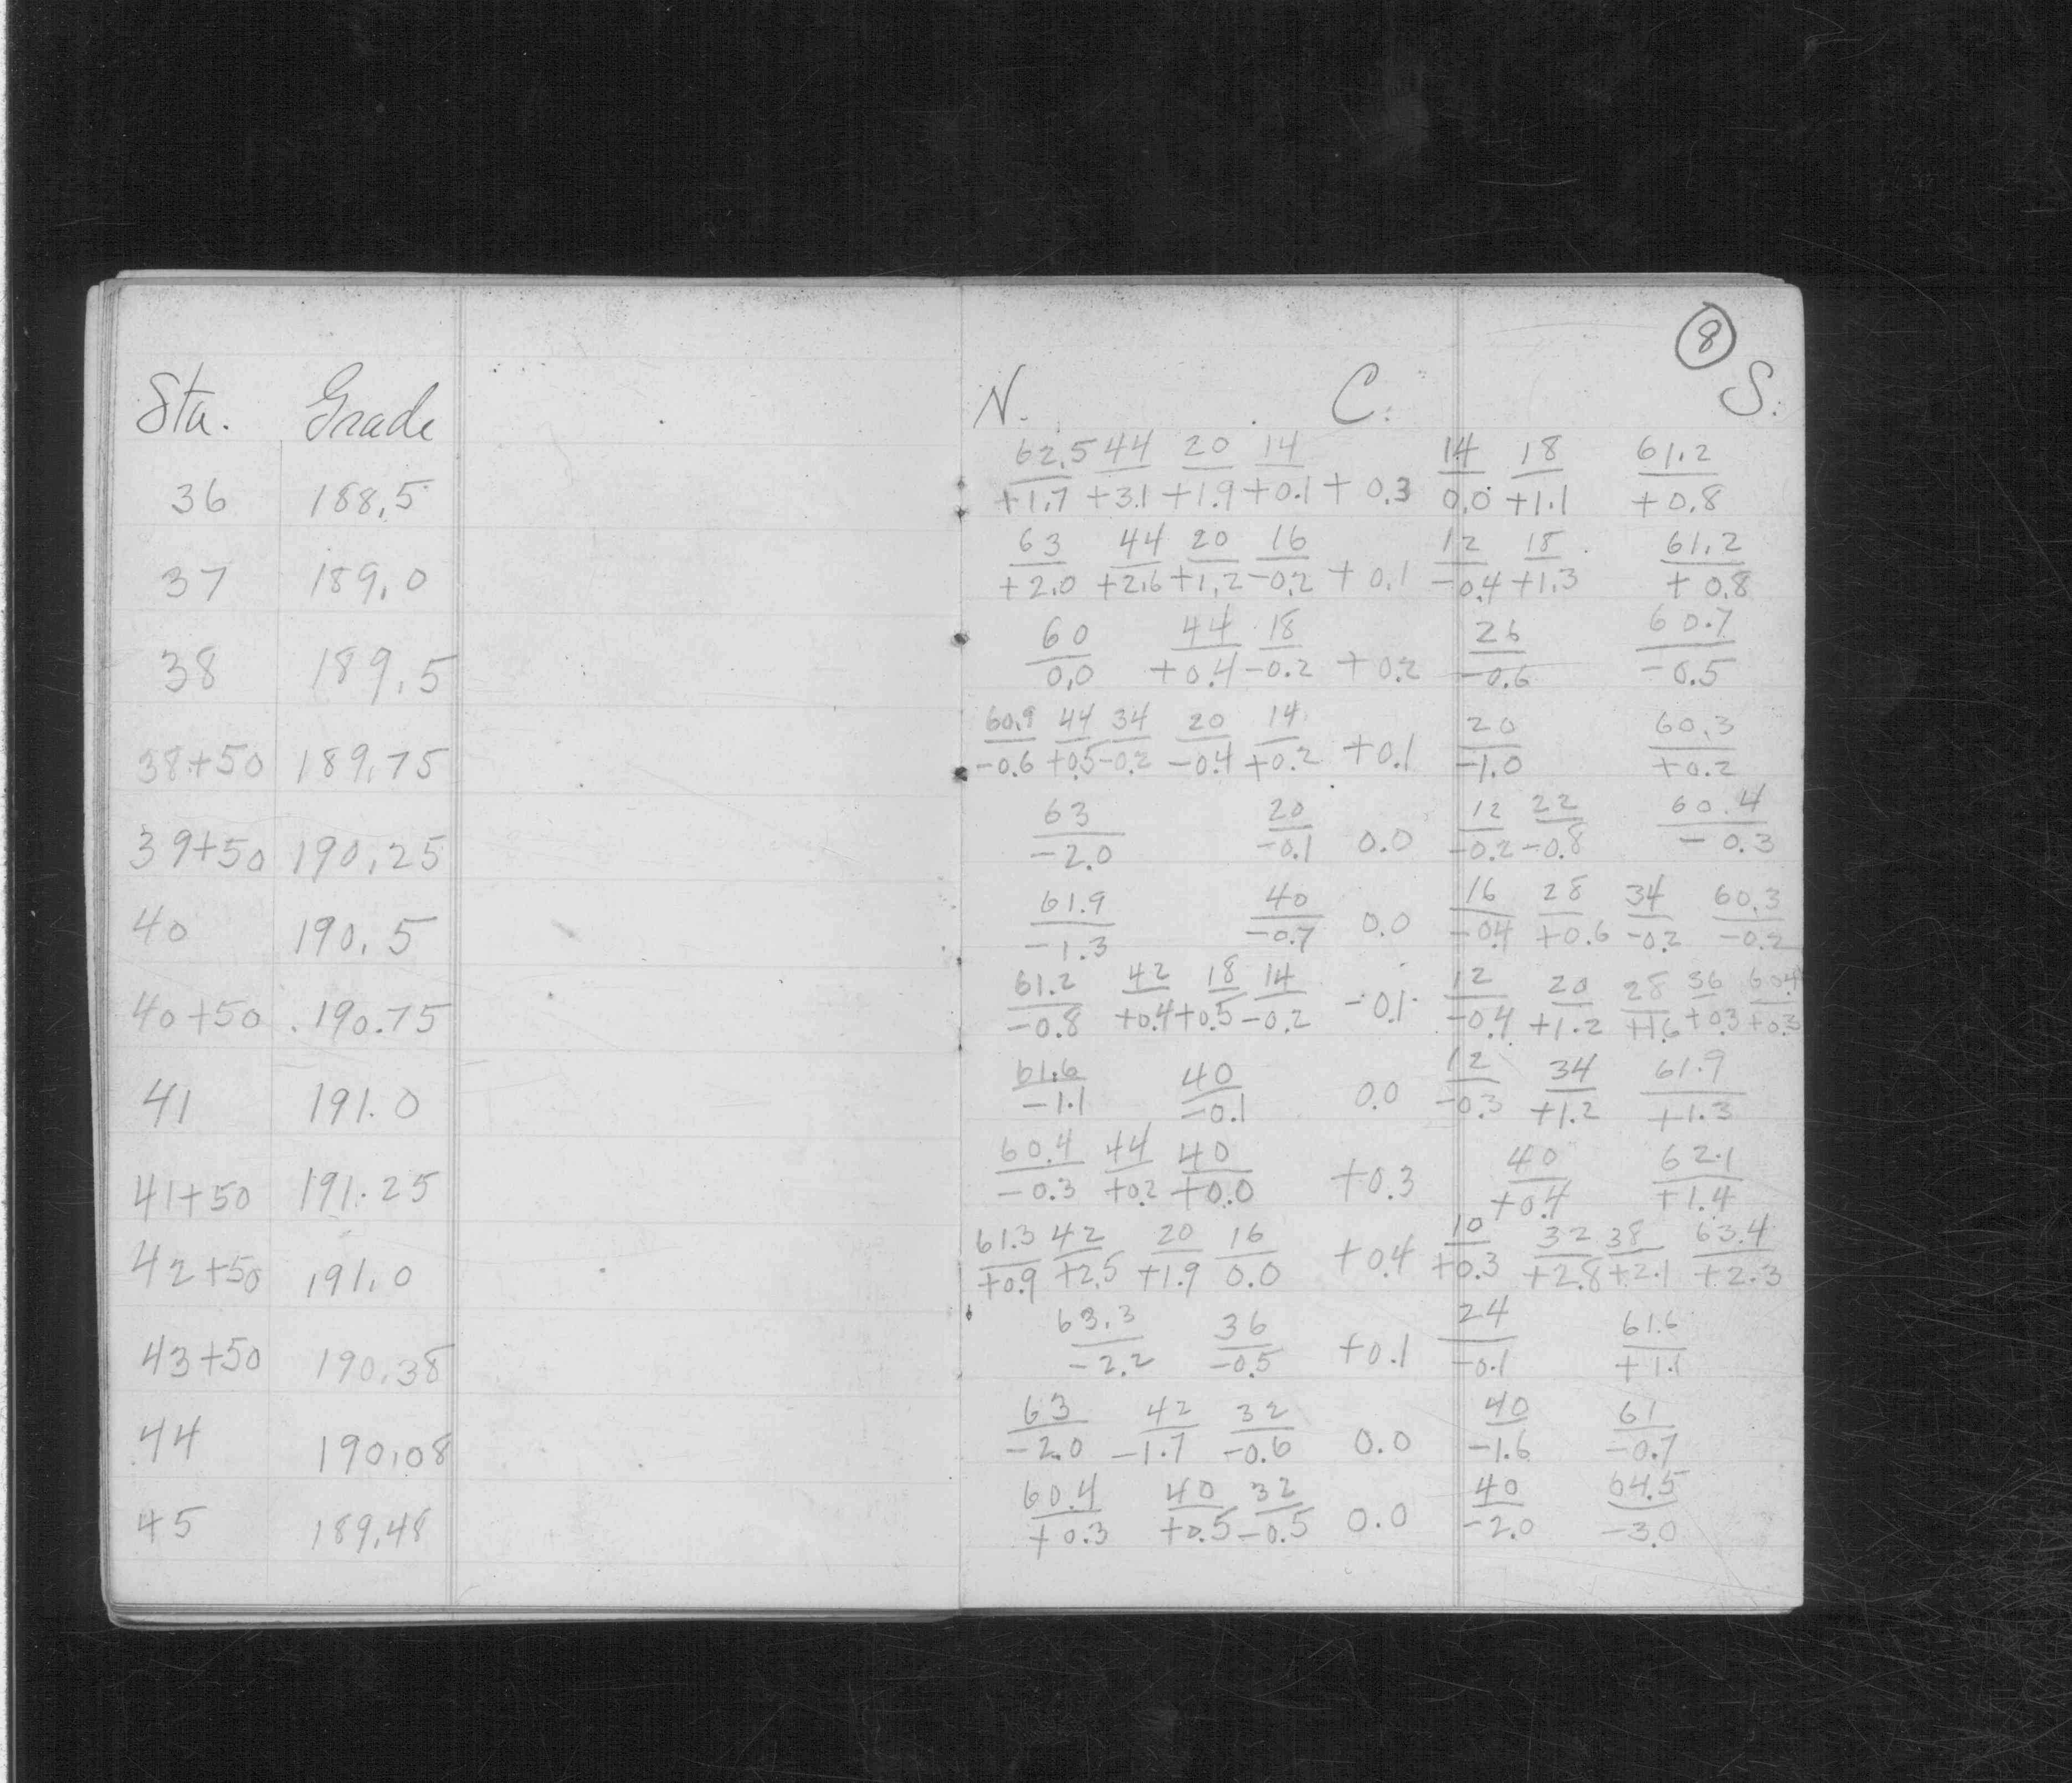 8
Sta. Grade N. C. S.
62.5 44 20 14 14 18 61.2
36 188.5 +1.7 +3.1 +1.9 +0.1 +0.3 0.0 +1.1 +0.8
63 44 20 16 12 18 61.2
37 189.0 +2.0 +2.6 +1.2 -0.2 +0.1 -0.4 +1.3 +0.8
60 44 18 26 60.7
38 189.5 0.0 +0.4 -0.2 +0.2 -0.6 -0.5
60.9 44 34 20 14 20 60.3
38+50 189.75 -0.6 +0.5 -0.2 -0.4 +0.2 +0.1 -1.0 +0.2
63 20 12 22 60.4
39+50 190.25 -2.0 -0.1 0.0 -0.2 -0.8 -0.3
61.9 40 16 28 34 60.3
40 190.5 -1.3 -0.7 0.0 -0.4 +0.6 -0.2 -0.2
61.2 42 18 14 12 20 28 36 60.4
40+50 190.75 -0.8 +0.4 +0.5 -0.2 -0.1 -0.4 +1.2 +1.6 +0.3 +0.3
61.6 40 12 34 61.9
41 191.0 -1.1 -0.1 0.0 -0.3 +1.2 +1.3
60.4 44 40 40 62.1
41+50 191.25 -0.3 +0.2 +0.0 +0.3 +0.4 +1.4
61.3 42 20 16 10 32 38 63.4
42+50 191.0 +0.9 +2.5 +1.9 0.0 +0.4 +0.3 +2.8 +2.1 +2.3
63.3 36 24 61.6
43+50 190.38 -2.2 -0.5 +0.1 -0.1 +1.1
63 42 32 40 61
44 190.08 -2.0 -1.7 -0.6 0.0 -1.6 -0.7
60.4 40 32 40 64.5
45 189.48 +0.3 +0.5 -0.5 0.0 -2.0 -3.0